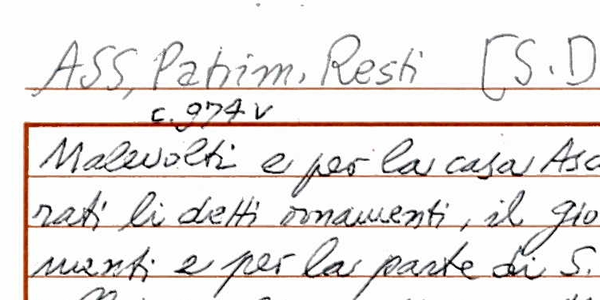 ASS, Patrim. Resti [S.D
c. 974 v
Malevolti e per la casa Asc
rati li detti ornamenti, il gio
menti e per la parte di S.